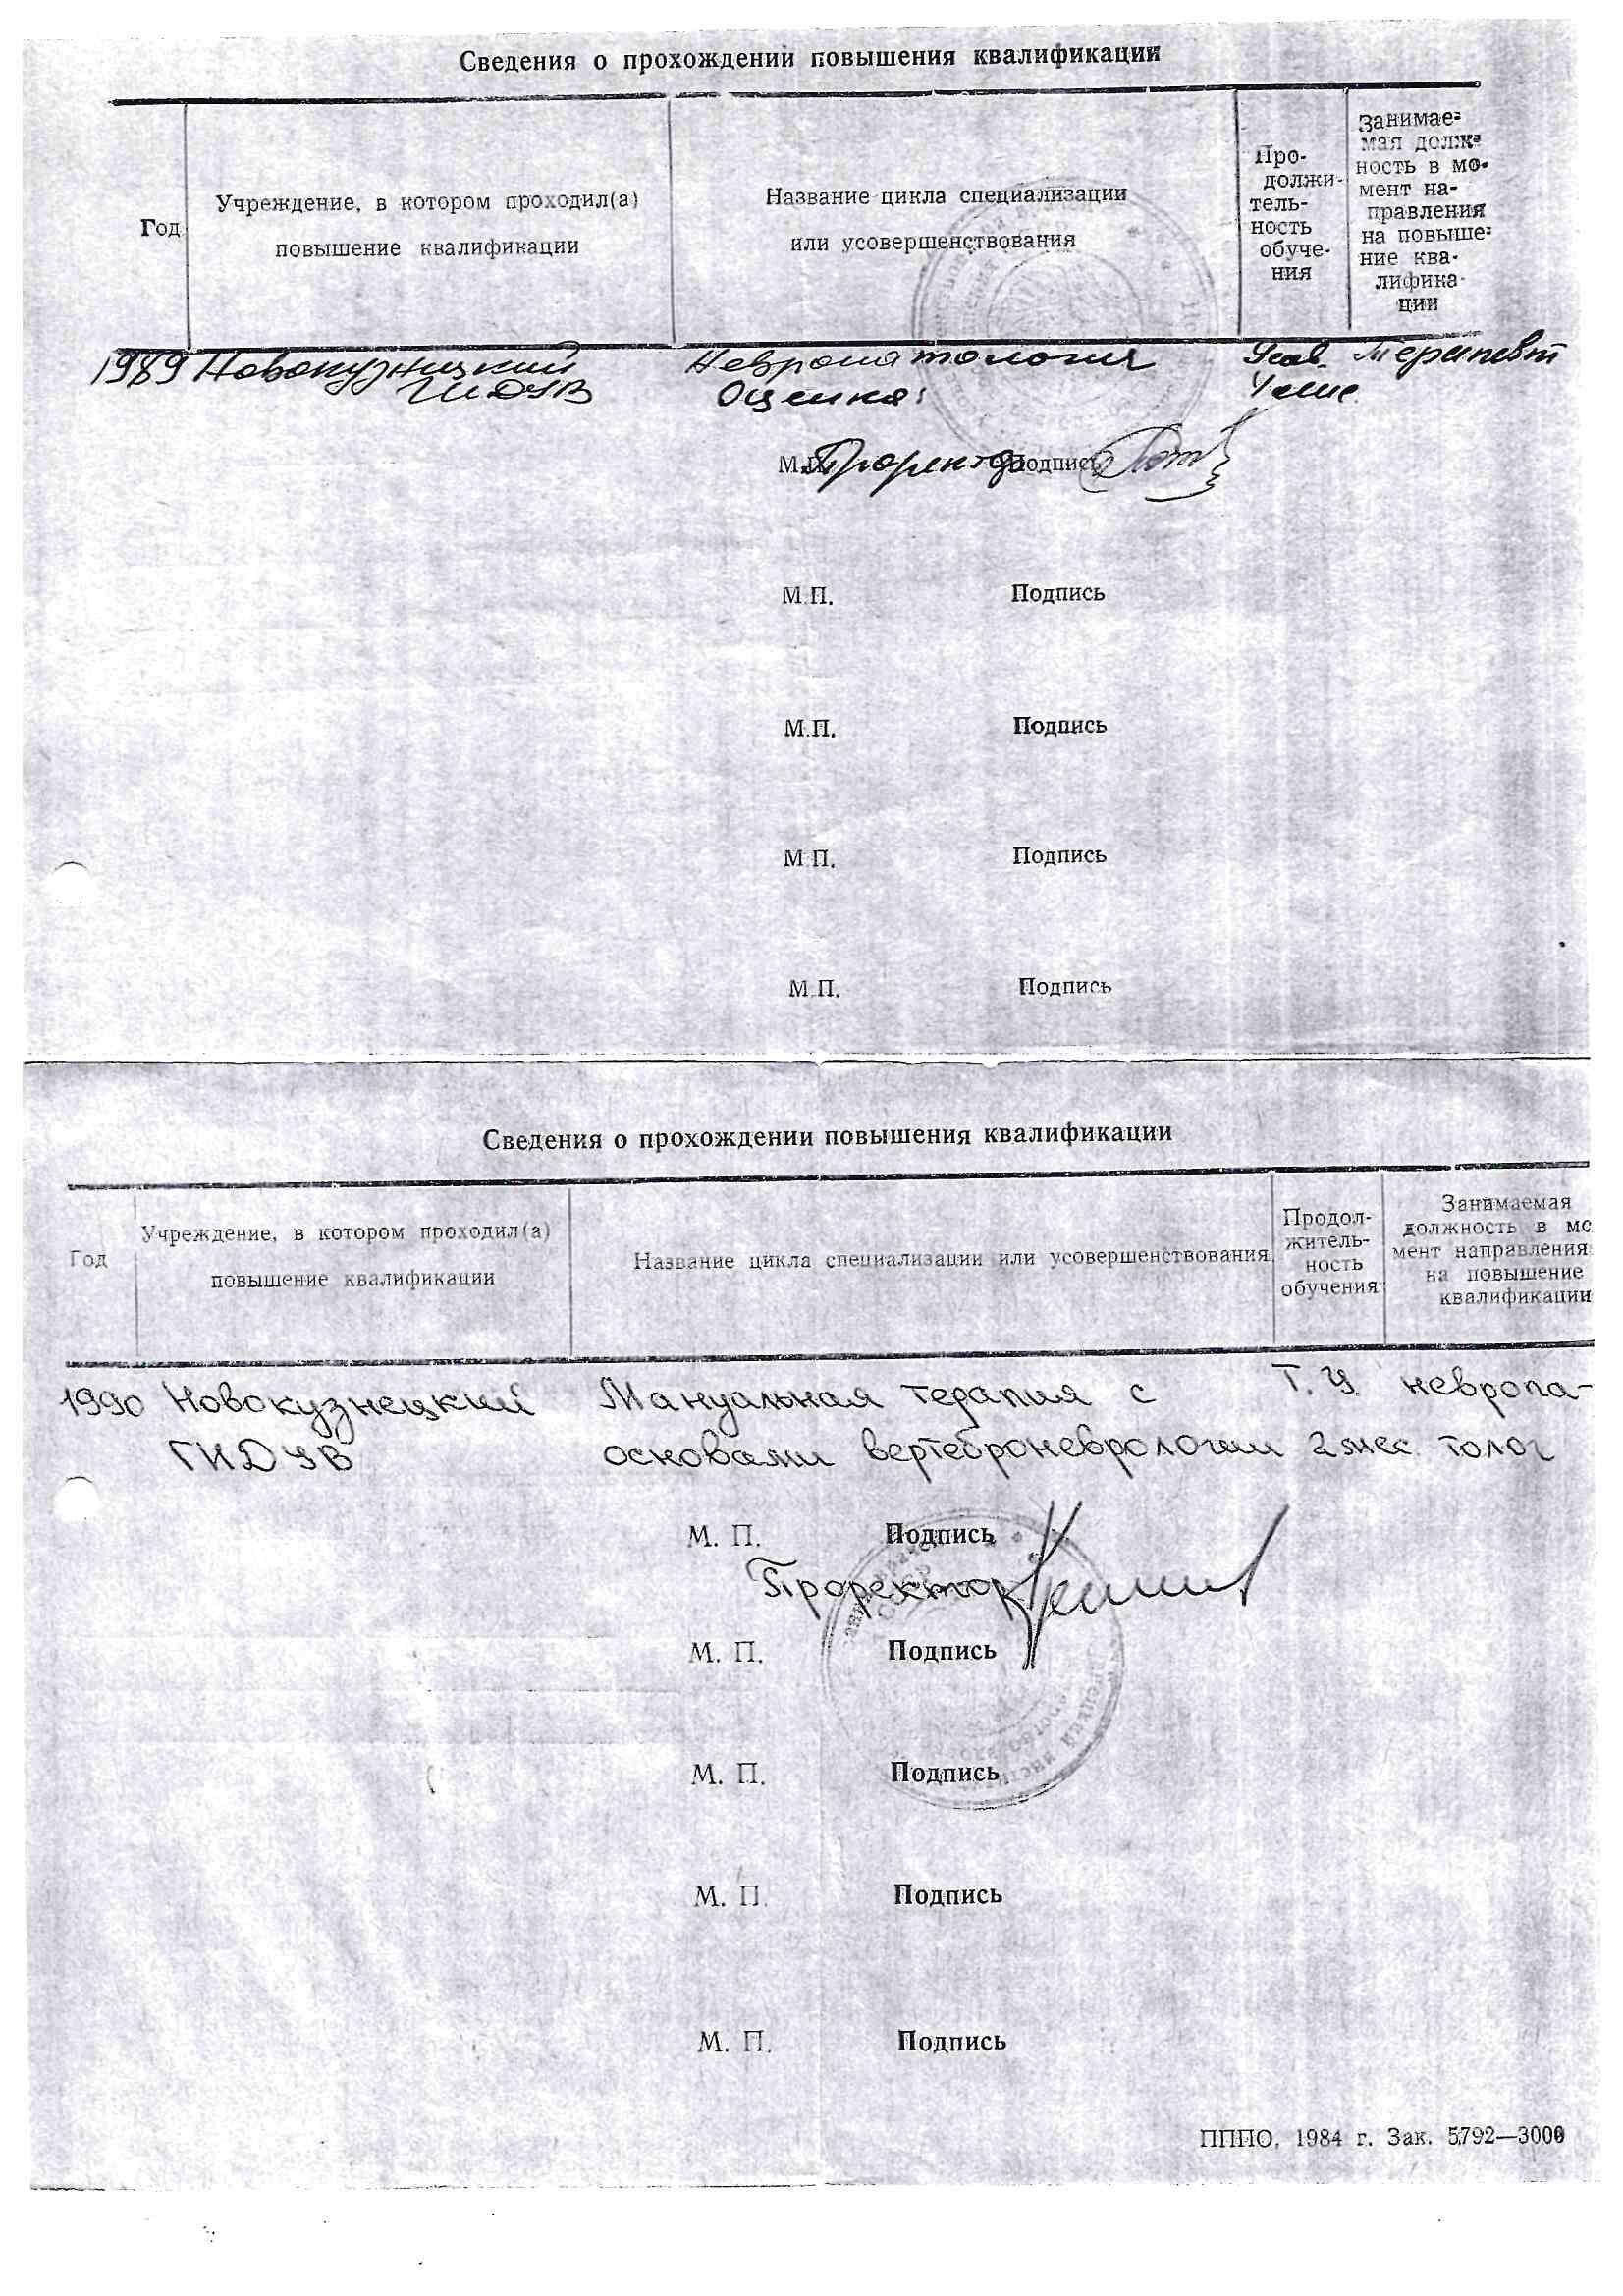 Сведения о прохождении повышения квалификации
Год
Учреждение, в котором проходил(а)
повышение квалификации
Название цикла специализации
или усовершенствования
Про-
должи-
тель-
ность
обуче-
ния
Занимае-
мая долж-
ность в мо-
мент на-
правления
на повыше-
ние ква-
лифика-
ции
1989 Новокузницкий Невропатология Терапевт
ГИДУВ Оценка:
М.П. Проректор Подпись
М.П. Подпись
М.П. Подпись
М.П. Подпись
М.П. Подпись
Сведения о прохождении повышения квалификации
Год
Учреждение, в котором проходил(а)
повышение квалификации
Название цикла специализации или усовершенствования
Продол-
житель-
ность
обучения
Занимаемая
должность в мо
мент направления
на повышение
квалификации
1990 Новокузнецкий Мануальная терапия с Т.У. невропа-
ГИДУВ основами вертеброневрологии 2 мес. толог
М. П. Подпись
Проректор
М. П. Подпись
М. П. Подпись
М. П. Подпись
М. П. Подпись
ПППО, 1984 г. Зак. 5792—3000